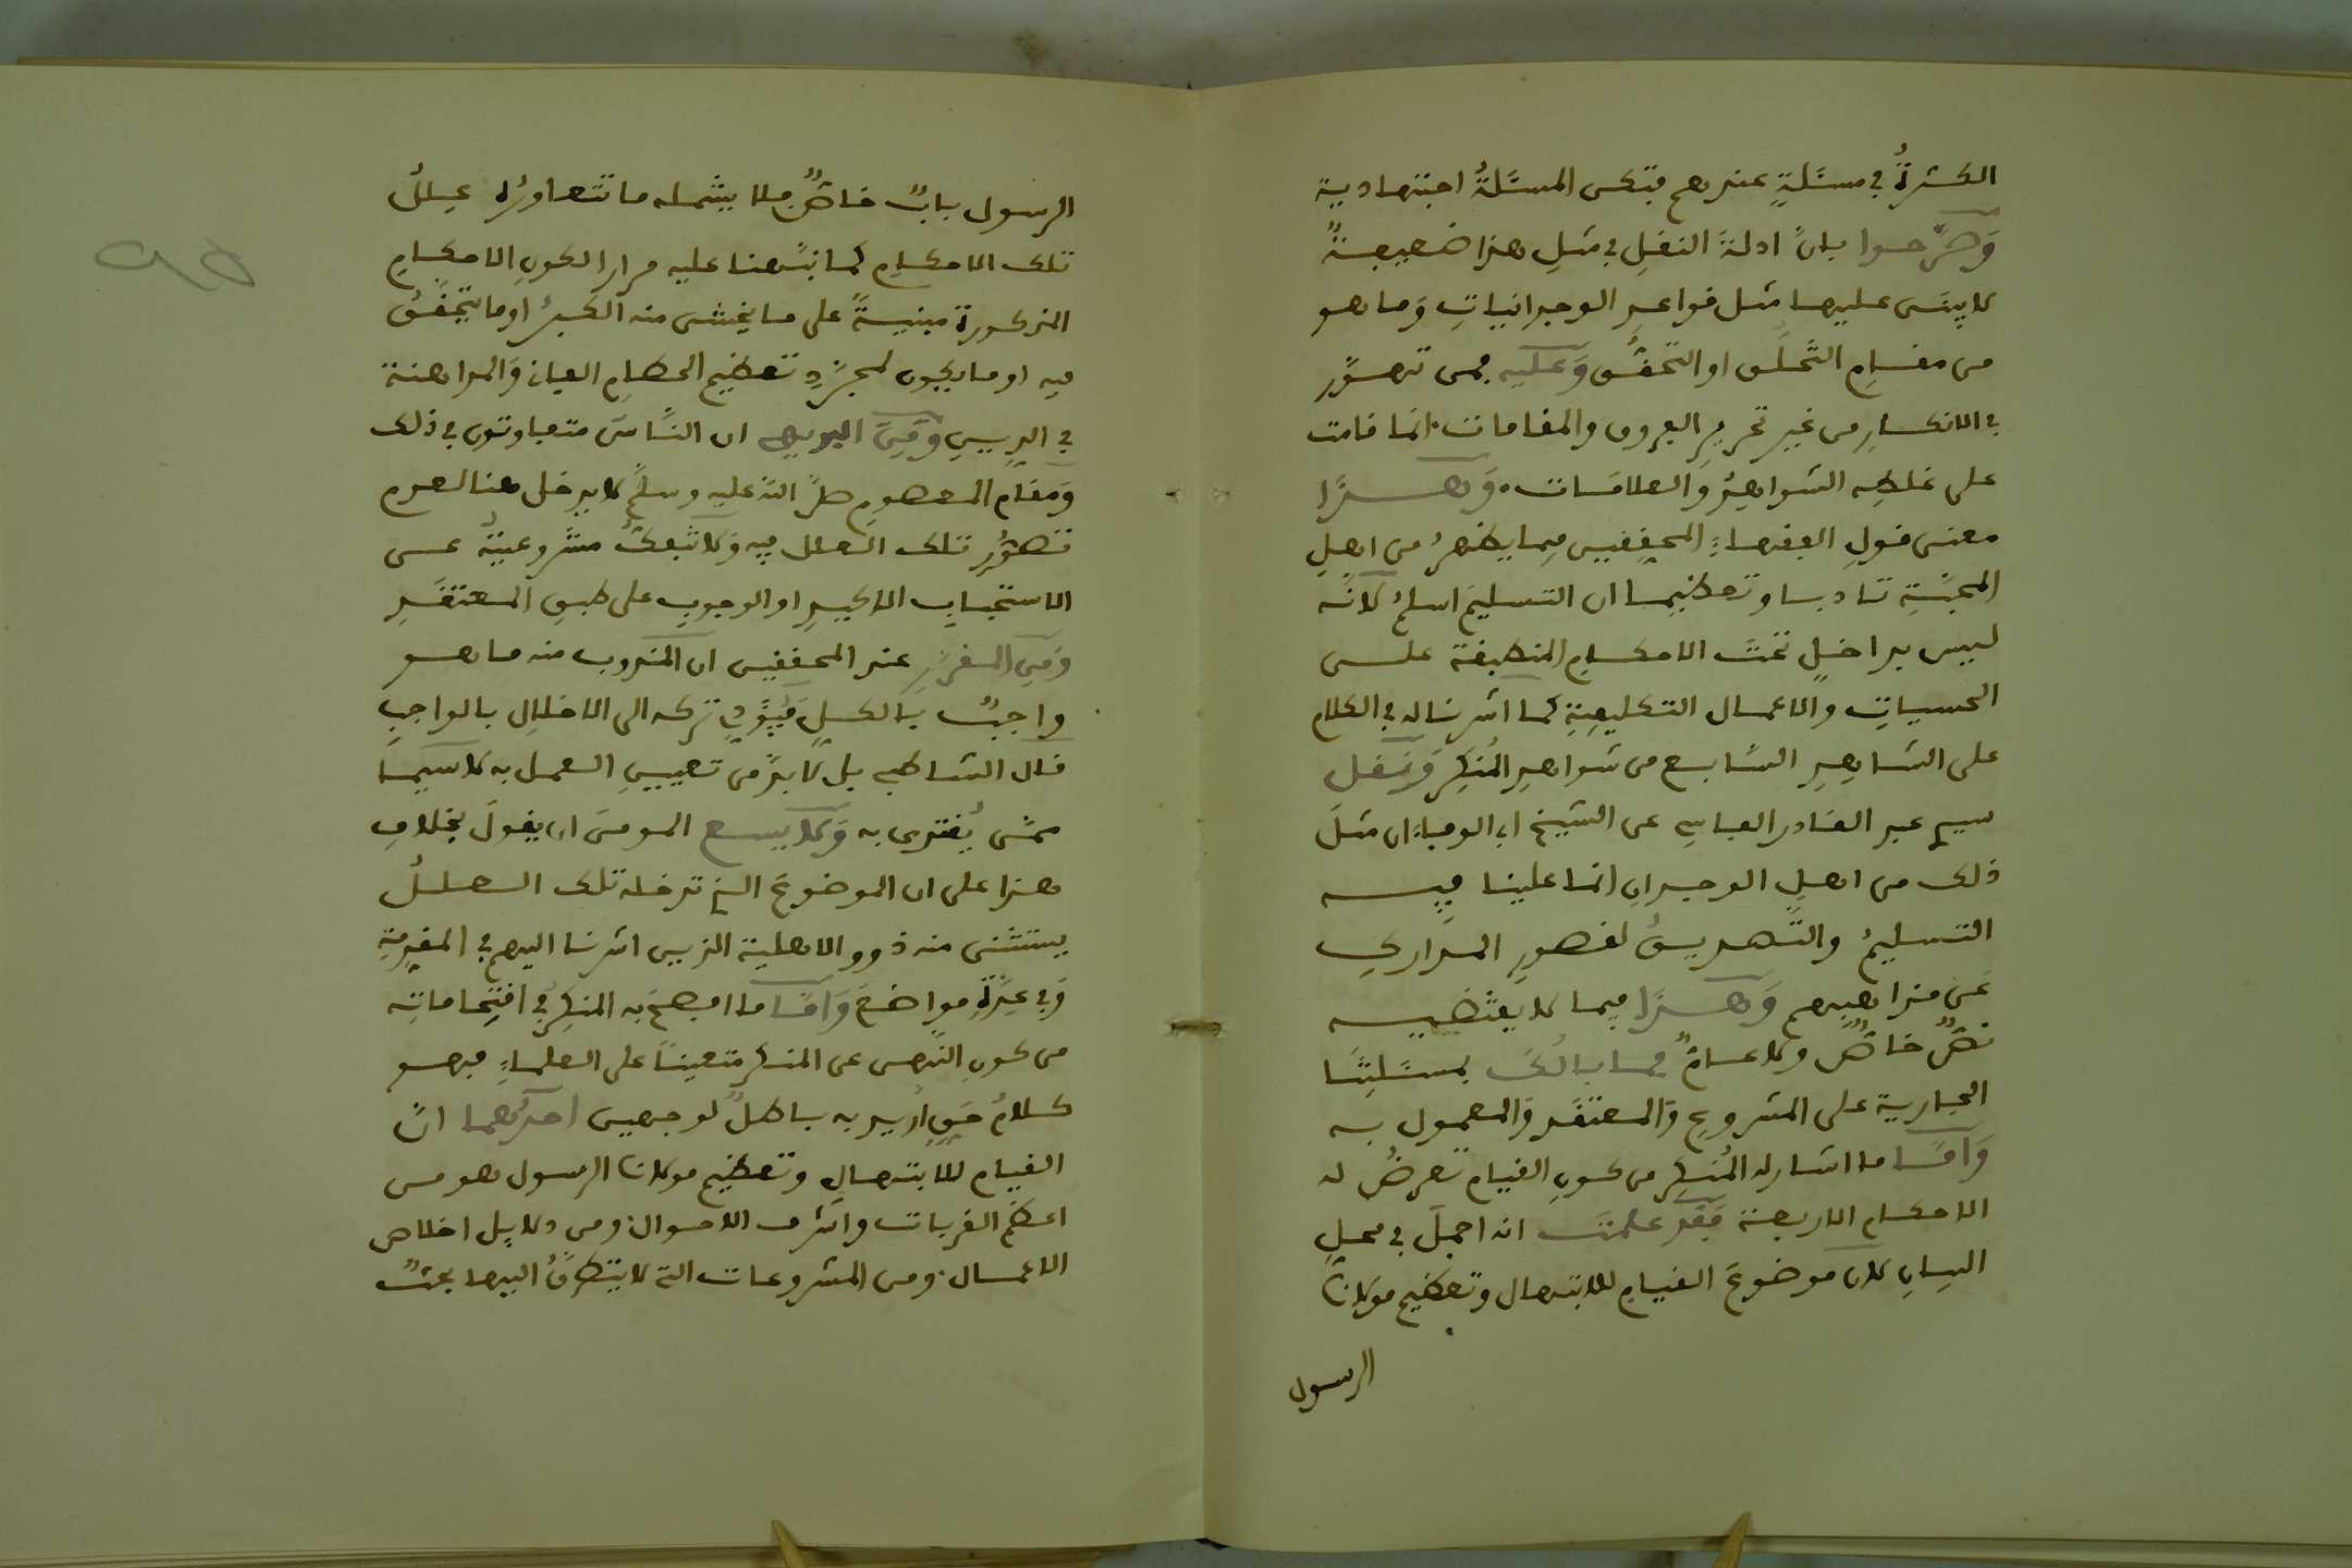 الكثرةُ في مسئلةٍ عندهم فتكن المسئلةُ اجتهادية
وَصرّحوا بانّ ادلةَ النقلِ في مثلِ هذا ضعيفةٌ
لا ينبنى عليها مثل قواعدِ الوجدانياتِ وَما هو
من مقامِ التخلُّق او التحقُّق وَعليه فمن تهوَّر
في الانكارِ من غير تحريرِ الفروق والمقامات انما قامت
على غلطِه الشواهدُ وَالعلامَات وَهـــذا
معنى قولِ الفقهاءِ المحققين فيما يظهرُ من اهلِ
المحبّةِ تادبا وتعظيما ان التسليمَ اسلمُ لانّه
ليس بداخلٍ تحتَ الاحكامِ المنطبقة علـــى
الحسياتِ والاعمال التكليفيةِ كما اشرنا له في الكلام
على الشاهدِ السَّابع من شواهدِ المُنكِر وَنقل
سيدي عبد القادر الفاسي عن الشيخ ابي الوفاء ان مثلَ
ذلك من اهلِ الوجدانِ انما علينا فيـــه
التسليمُ والتَّصديقُ لقصورِ المدَارك
عَن مذاهبهم وَهــذا فيما لا يقتضيـــه
نصٌّ خاصٌّ ولا عـامٌّ فما بالُكَ بمسئلتِنَا
الجارية على المشروع وَالمعتقَد وَالمعمول به
وَامَّــا ما اشار له المُنكِر من كونِ القيام تعرضُ له
الاحكام الاربعة فَقد علمتَ انه اجملَ في محلِ
البيانِ لان موضوعَ القيامِ للابتهال وتعظيم مولانا
الرسول
الرسول بابٌ خاصٌّ فلا يشمله ما تتعاورُه عِللُ
تلك الاحكام كما نبَّهنا عليه مرارا لكونِ الاحكامِ
المذكورة مبنيةً على ما يخشى منه الكبرُ او ما يتحقّقُ
فيه او ما يكون لمجرّدِ تعظيم الحطامِ الفاني وَالمداهنة
في الدِينِ وَمِن البديهي ان النَّاسَ متفاوتون في ذلك
وَمقام المعصومِ صلَّى اللهُ عليه وسلَّم لا يدخل هنا لعدم
تصوُّر تلك العلل فيه وَلا تبقىُ مشروعيتُه عـــن
الاستحبابِ الاكيدِ او الوجوبِ على طبقِ المعتقَدِ
وَمِن المقررِ عند المحققين ان المندوب منه ما هــو
واجبٌ بالكلِ فيُؤدي تركه الى الاخلالِ بالواجبِ
قال الشاطبي بل لا بدَّ من تعيينِ العمل به لا سيما
ممَّن يُقتدى به وَلا يسع المومنَ ان يقولَ بخلاف
هذا على ان الموضوعَ الذي تدخله تلك العــللُ
يستثنى منه ذوو الاهلية الذين اشرنا اليهم في المقدِمةِ
وَفي عِدَّةِ مواضعَ وَامَّــا ما افصحَ به المنكِرُ في اقتِحاماتِه
من كون النَّهى عن المنكر متعيناً على العلماءِ فهــو
كــلامُ حَقٍ اُريد به باطلٌ لوجهين احدُهما انّ
القيام للابتهال وتعظيم مولانا الرسول هو من
اعظَم القربات واشرف الاحوال ومن دلايلِ اخلاص
الاعمــال ومن المشروعات التي لا يتطرقُ اليها بحثٌ